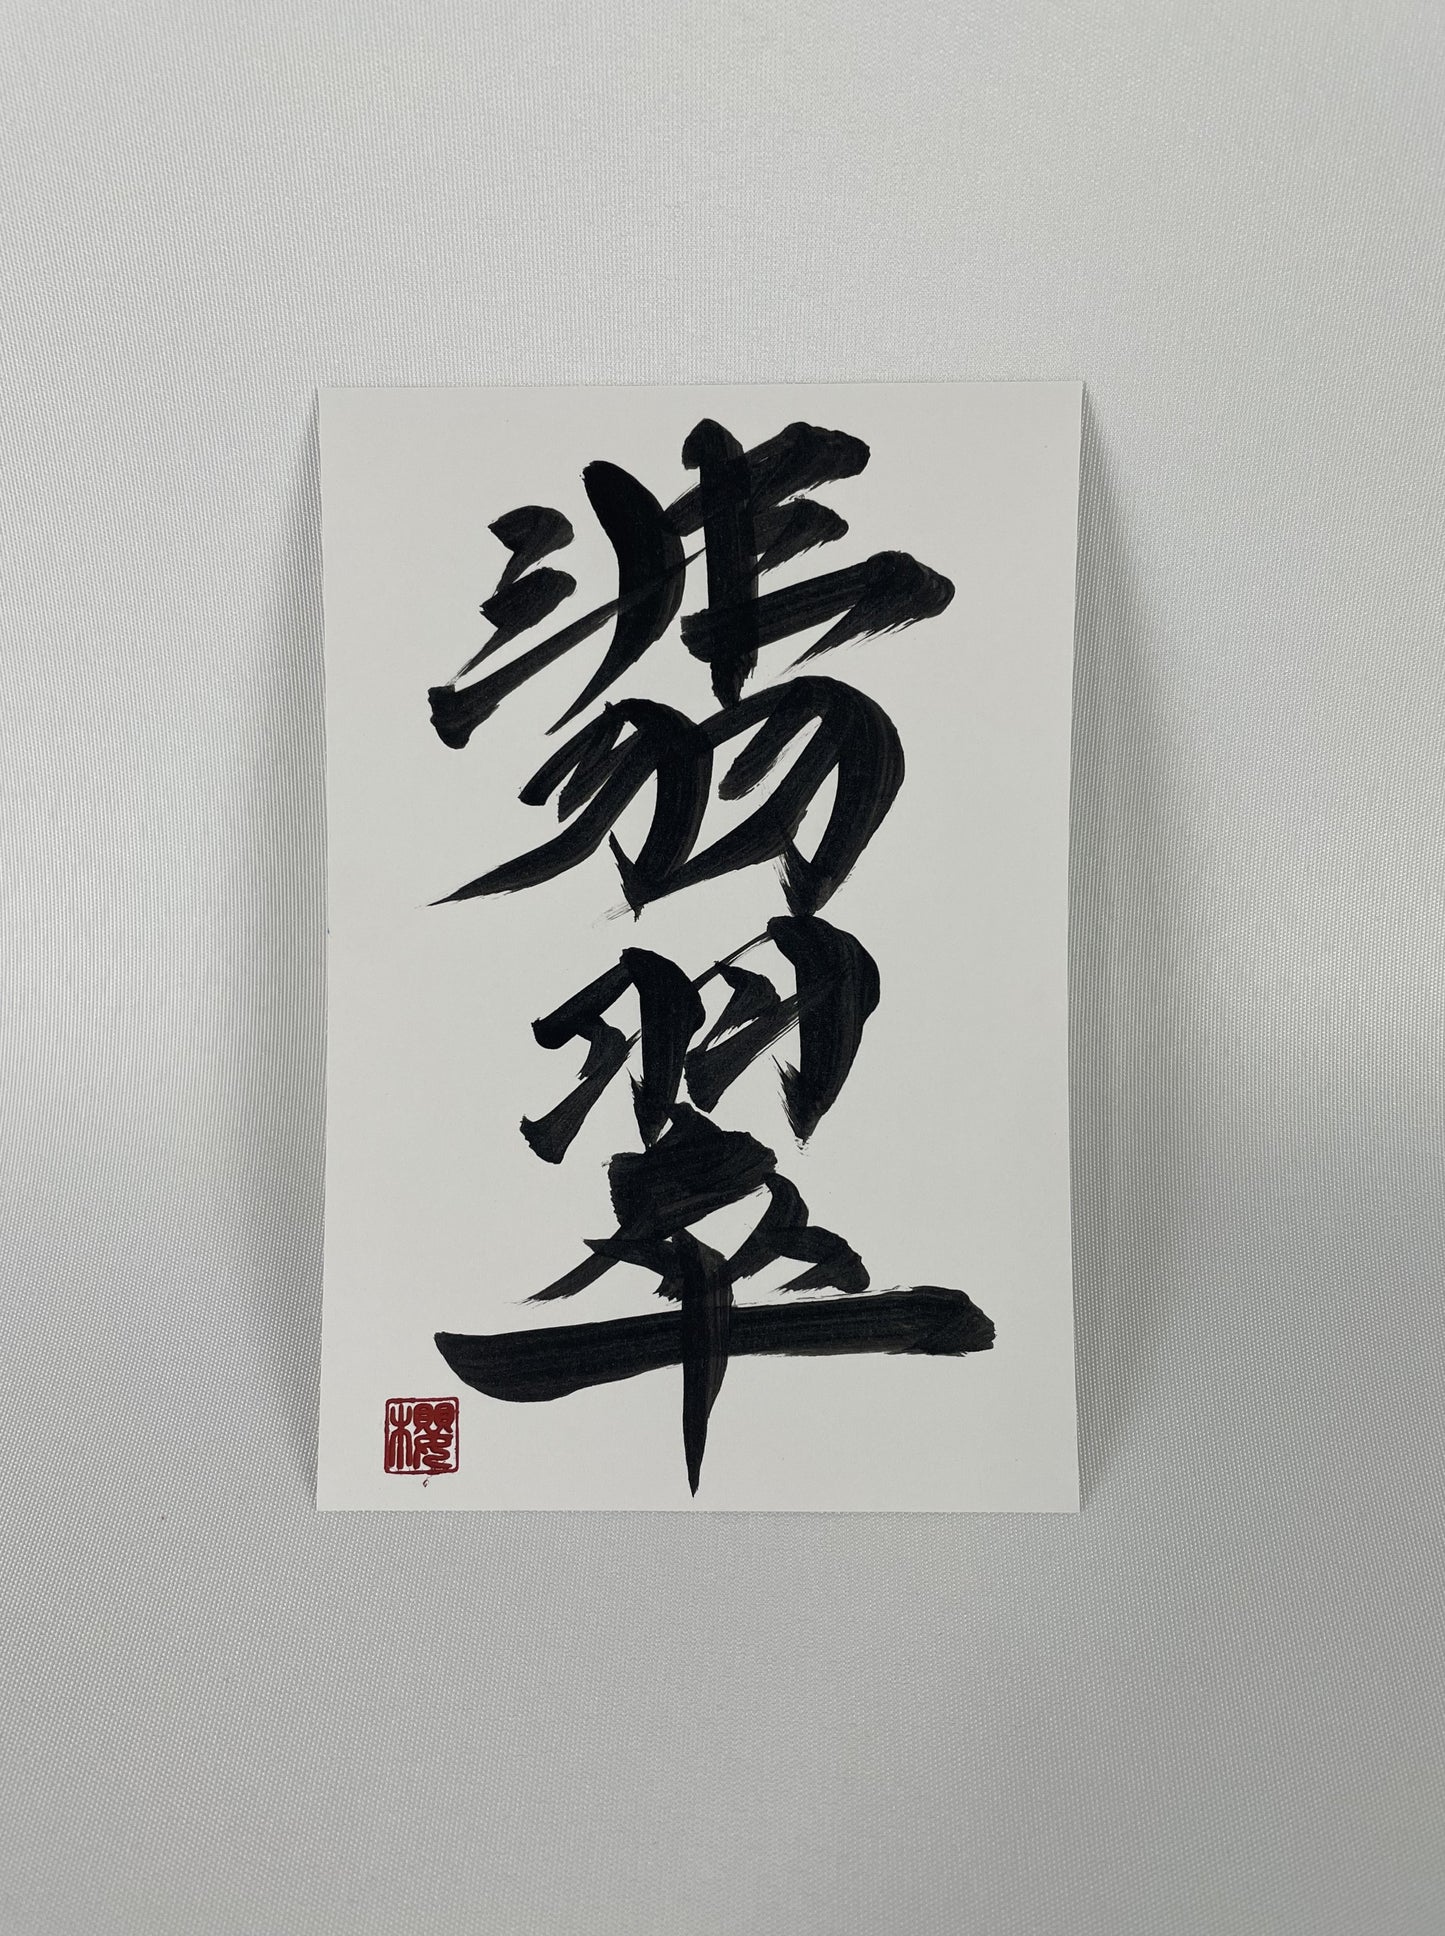 翡翠
櫻